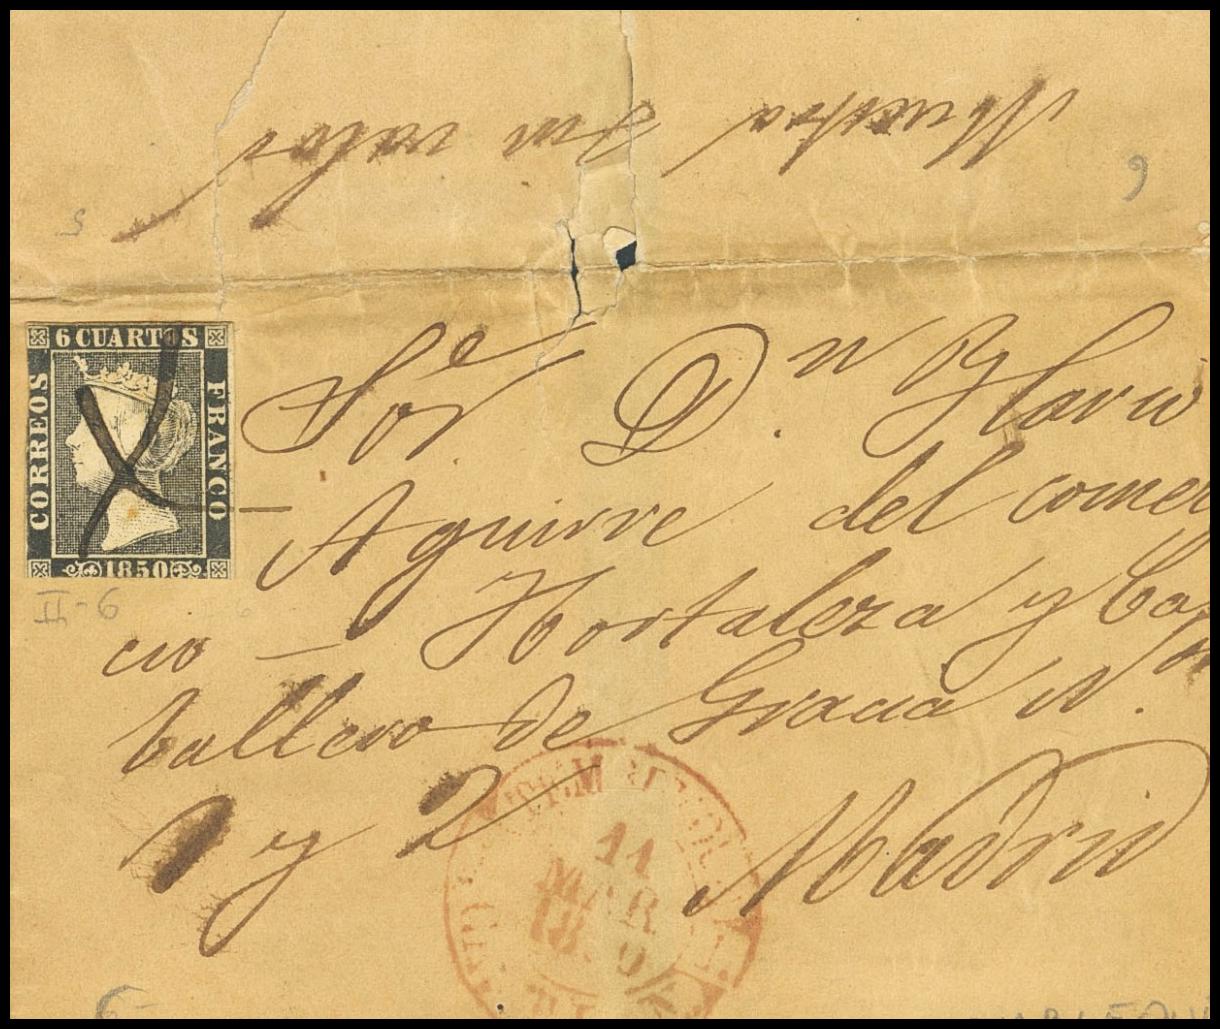 Muestra sin valor
6
5
6 CUARTOS
CORREOS
FRANCO
1850
II-6
Sor. Dn Ylario
Aguirre del comer
cio — Hortaleza y Ca
ballero de Gracia N.
1 y 2 Madrid
11
MAR
18 0
6